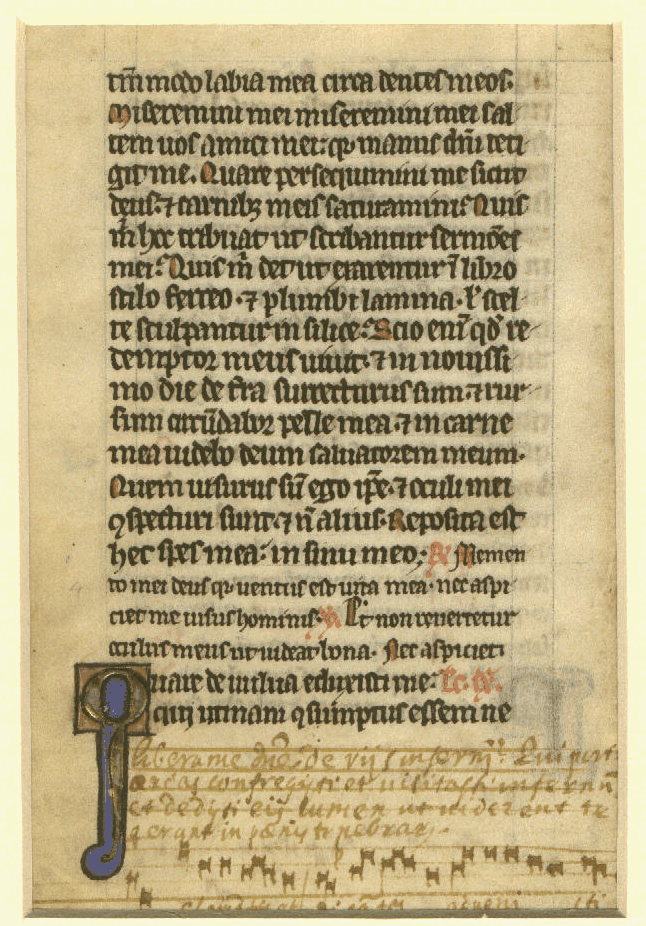 tm̄modo labia mea circa dentes meos.
Miseremini mei miseremini mei sal
tem uos amici mei: qꝛ manus dn̄i teti
git me. Quare persequimini me sicut
deus: ⁊ carnibꝫ meis saturamini: Quis
m̄ hec tribuat ut scribantur sermōes
mei: Quis m̄ det ut exarentur ī libro
stilo ferreo. ⁊ plumbi lamina. ł stel
te sculpantur in silice: Scio enī qd̄ re
demptor meus uiuit. ⁊ in nouissi
mo die de tr̄a surrecturus sum. ⁊ rur
sum circūdabor pelle mea. ⁊ in carne
mea uidebo deum saluatorem meum.
Quem uisurus sū ego ip̄e. ⁊ oculi mei
ꝯspecturi sunt. ⁊ n̄ alius. Reposita est
hec spes mea: in sinu meo; ℟ Memen
to mei deus qꝛ uentus est uita mea. nec aspi
ciet me uisus hominis. ℣ Et non reuertetur
oculus meus ut uideat bona. Nec aspiciet.
Quare de uulua eduxisti me: Lc. ix.
qui utinam ꝯsumptus essem ne
Libera me dn̄e de vijs inferni: Qui port
aereas confregisti et visitasti infernū
et dedisti eis lumen ut viderent te
q erant in pœnis tenebrar
adveni sti